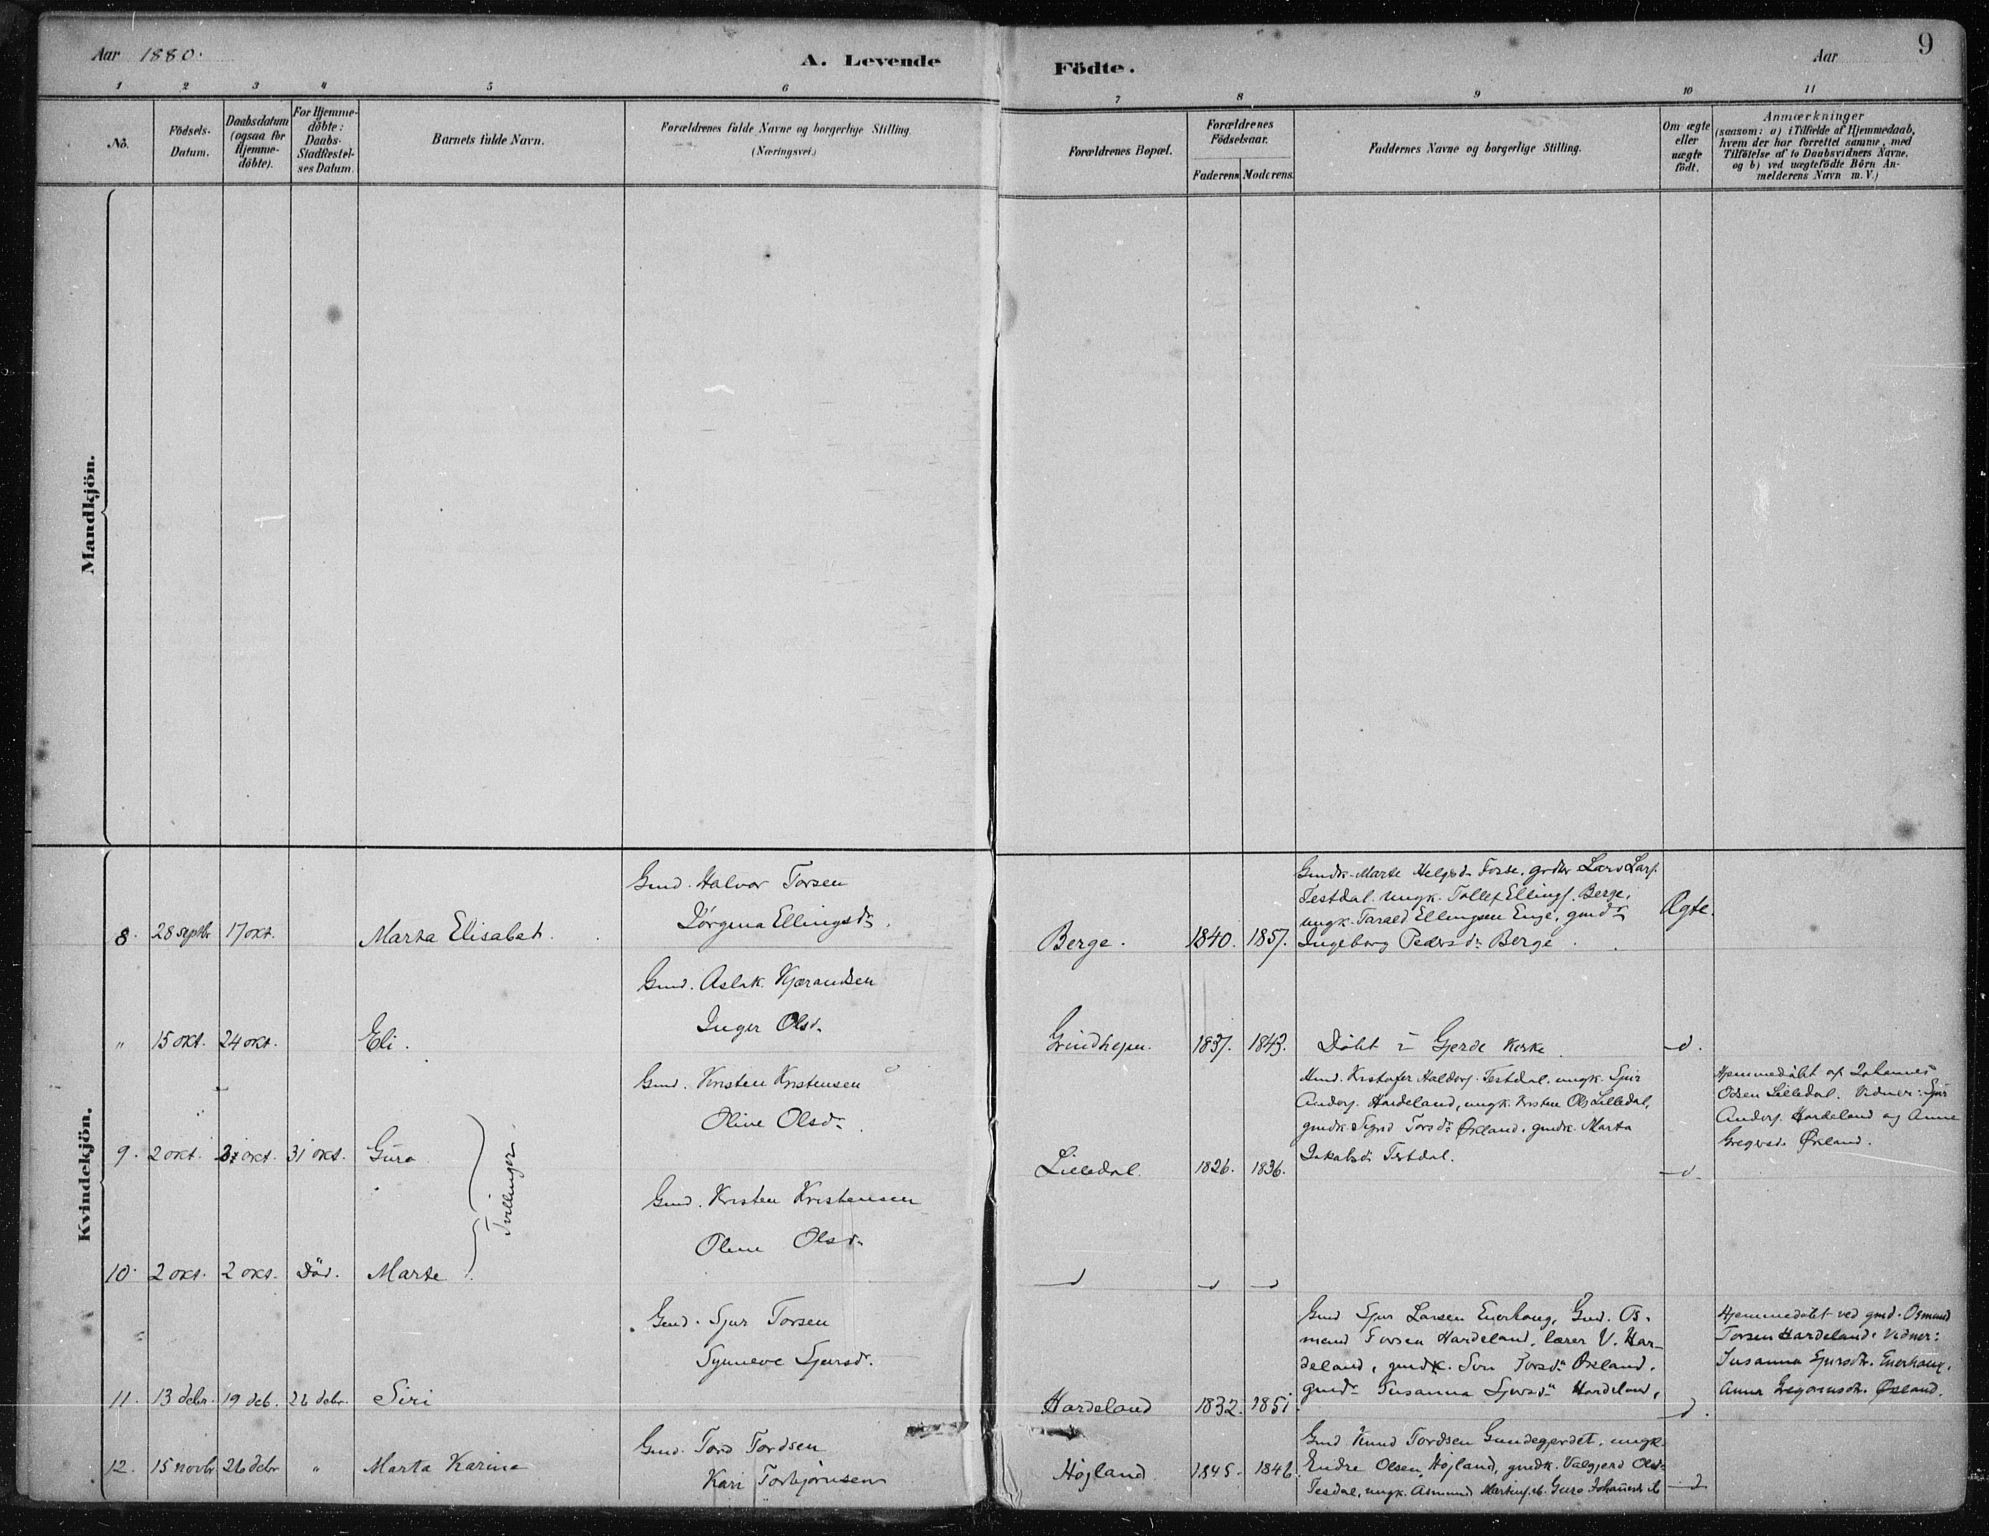 Aar 1880.
A. Levende
Födte.
Aar
9
1 2 3 4 5 6 7 8 9 10 11
No.
Födsels-
Datum.
Daabsdatum
(ogsaa for
Hjemme-
döbte).
For Hjemme-
döbte:
Daabs-
Stadfæstel-
ses Datum.
Barnets fulde Navn.
Forældrenes fulde Navne og borgerlige Stilling
(Næringsvei.)
Forældrenes Bopæl.
Forældrenes
Födselsaar.
Faderens
Moderens.
Faddernes Navne og borgerlige Stilling.
Om ægte
eller
uægte
født.
Anmærkninger
(saasom: a) i Tilfælde af Hjemmedaab,
hvem der har forrettet samme, med
Tilföielse af to Daabsvidners Navne,
og b) ved uægtefödte Börn An-
melderens Navn m. V.)
Mandkjön.
Kvindekjön.
8. 28 septbr 17 okt. Marta Elisabet.
Gmd. Halvor Torsen
Jörgina Ellingsdr.
Berge. 1840. 1857.
Gmdk. Marte Helgsdr Fosse, grdbr Lars Lars.
Testdal. ungk. Tollef Ellings. Berge,
ungk. Tarald Ellingsen Enge, gmdr
Ingeborg Pedersdr Berge
Ægte.
" 15 okt. 24 okt. Eli.
Gmd. Aslak Kjærandsen
Inger Olsdr.
Grindheim. 1837. 1843.
Döbt i Gjerde Kirke.
-d.
9. 2 okt. 31 okt. Guro
Gmd. Kristen Kristensen
Olive Olsdr.
Lilledal. 1826. 1836.
Kristofer Haldors. Testdal. ungk. Sjur
Anders. Hardeland, ungk. Kristen Ols Lilledal,
gmdk. Torsdr Økland. gmdk. Marta
Jakobsdr Testdal.
-d.
Hjemmedöbt af Johannes
Olsen Lilledal. Vidner: Sjur
Anders. Hardeland og Anne
Gregersd. Økland.
Tvillinger.
10. 2 okt. 2 okt. Död. Marte
Gmd. Kristen Kristensen
Olive Olsdr
-d -d -d
11. 13 debr. 19 deb. 26 debr. Siri
Gmd. Sjur Torsen
Synneve Sjursdr.
Hardeland 1832. 1851.
Gmd Sjur Larsen Enerhaug, Gmd. Os-
mund Torsen Hardeland, lærer V. Har-
deland, gmdk. Siri Torsdr Økland,
gmdr Susanna Sjursdr Hardeland,
-d.
Hjemmedöbt ved gmd. Osmund
Torsen Hardeland. Vidner:
Susanna Sjursdtr. Enerhaug,
Anna Gregoriusdtr. Økland.
12. 15 novbr 26 debr " Marta Karine
Gmd. Tord Tordsen
Kari Torbjörnsen
Höjland 1845. 1846.
Gmd Knud Tordsen Gundegjerdet, ungk.
Endre Olsen Höjland, gmdk. Valgjerd Olsdr
Tesdal, ungk. Asmund Guro
-d